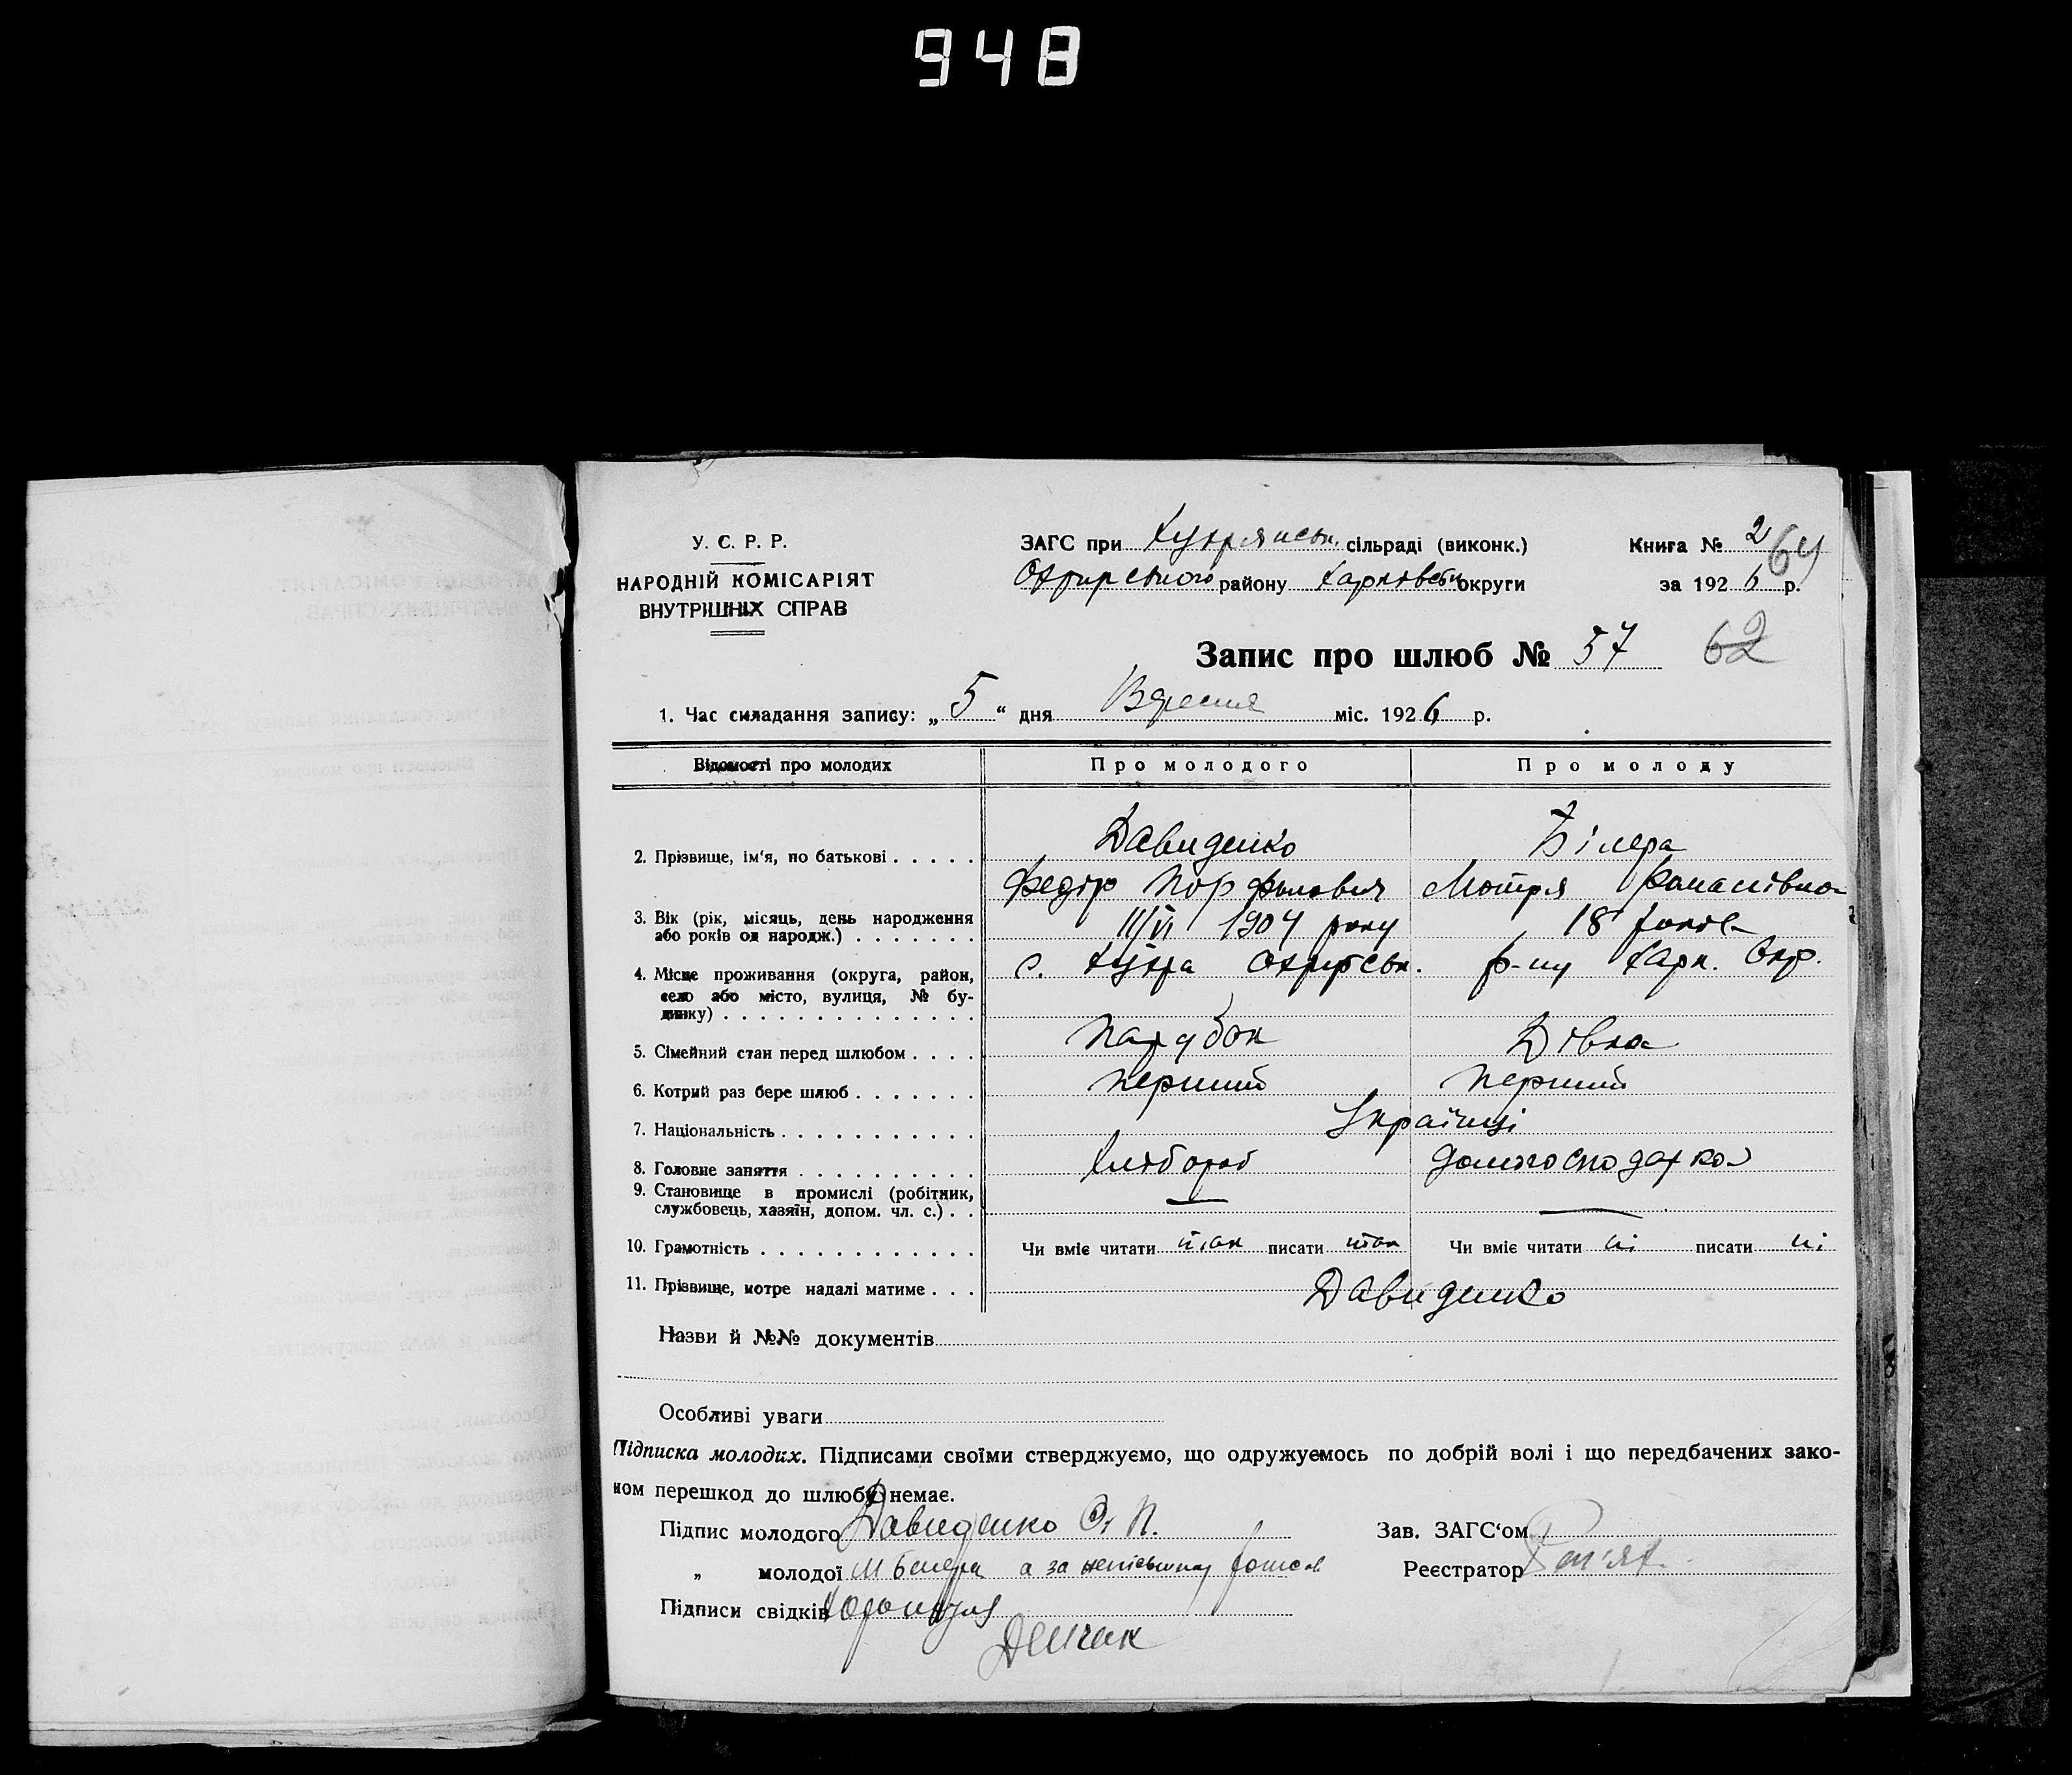 948
У. С. Р. Р.
НАРОДНІЙ КОМІСАРІЯТ
ВНУТРІШНІХ СПРАВ
ЗАГС при Хухрянськ. сільраді (виконк.)
Охтирського району Харківськ округи
Книга № 2
64
за 1926 р.
Запис про шлюб № 57
62
1. Час складання запису: „5“ дня Вересня міс. 1926 р.
Відомості про молодих
Про молодого
Про молоду
2. Прізвище, ім'я, по батькові
Давиденко
Федір Порфилович
Білера
Мотря Панасівна
3. Вік (рік, місяць, день народження
або років од народж.)
11/VI 1904 року
18 років
4. Місце проживання (округа, район,
село або місто, вулиця, № бу-
динку)
с. Хухра Охтирськ. р-ну Харк. Окр.
5. Сімейний стан перед шлюбом
Парубок
Дівка
6. Котрий раз бере шлюб
перший
перший
7. Національність
Українці
8. Головне заняття
Хлібороб
домогосподарка
9. Становище в промислі (робітник,
службовець, хазяїн, допом. чл. с.)
—
—
10. Грамотність
Чи вміє читати так писати так
Чи вміє читати ні писати ні
11. Прізвище, котре надалі матиме
Давиденко
Назви й №№ документів
Особливі уваги
Підписка молодих. Підписами своїми стверджуємо, що одружуємось по добрій волі і що передбачених зако-
ном перешкод до шлюбу немає.
Підпис молодого Давиденко П.
„ молодої М Билера а за неписьмену
Підписи свідків
Зав. ЗАГС‘ом
Реєстратор